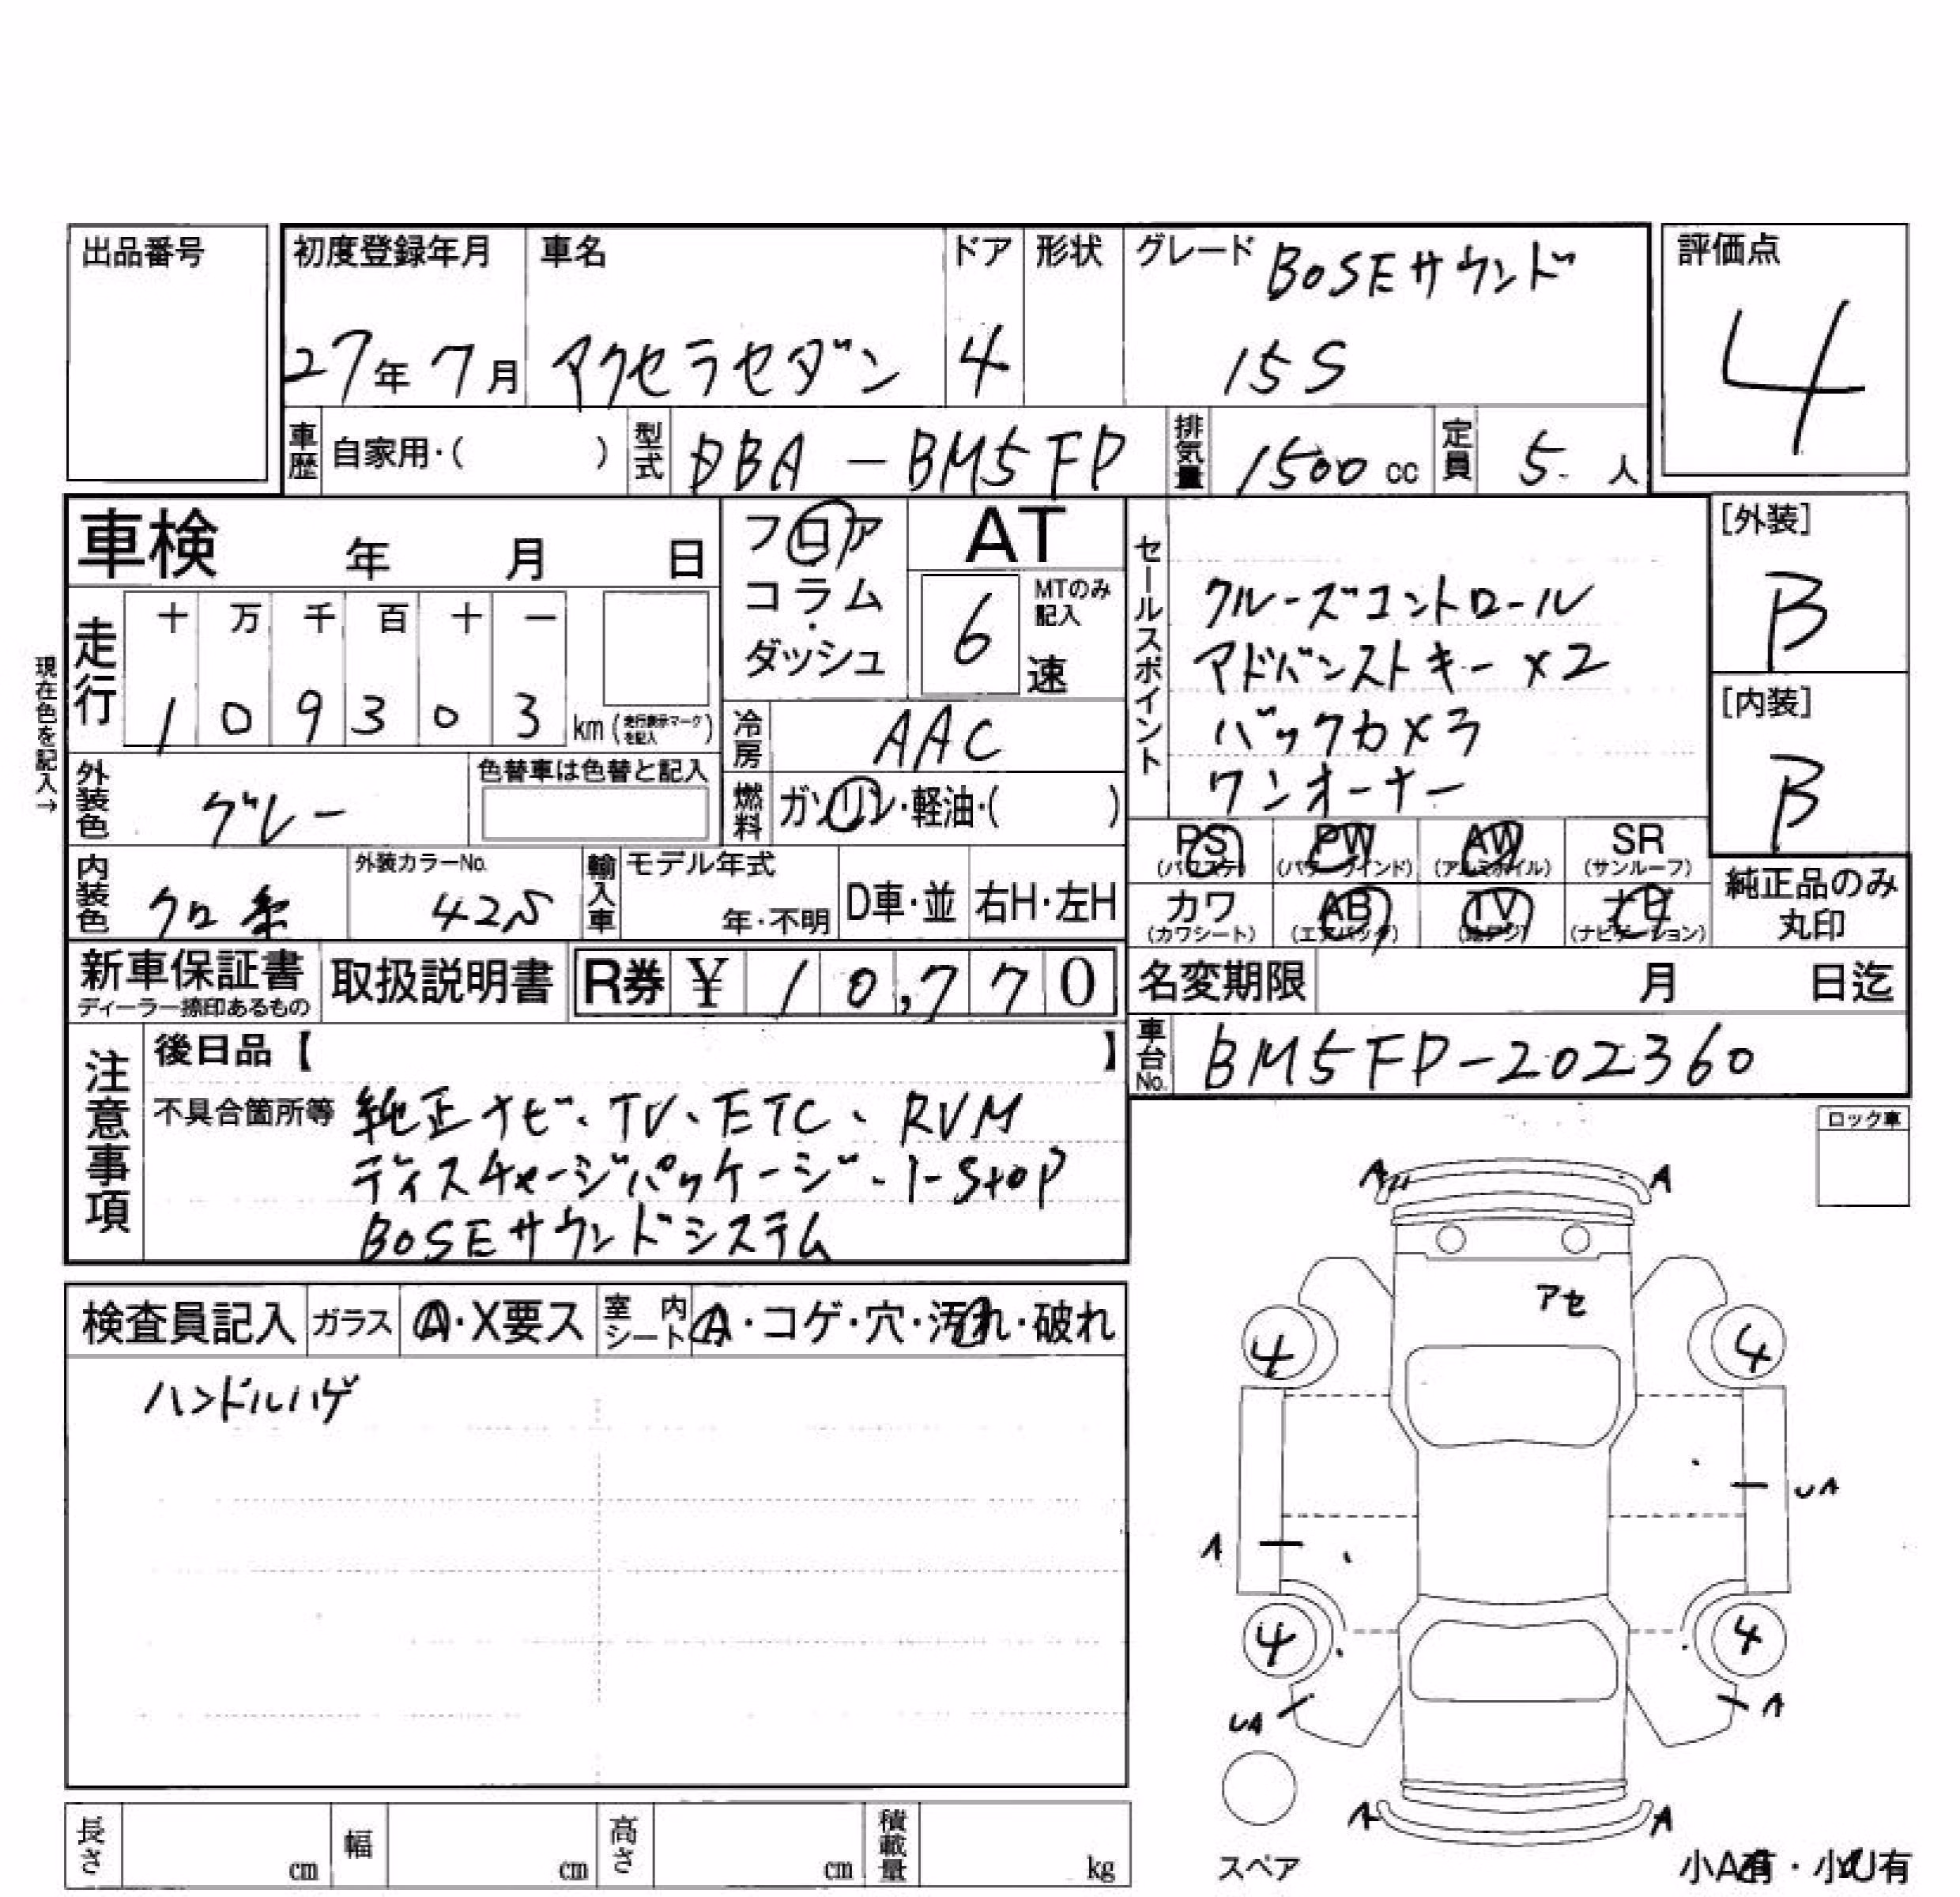 出品番号
初度登録年月 27年 7月
車名 アクセラセダン
ドア 4
形状
グレード BOSEサウンド
15S
評価点 4
車歴 自家用・( )
型式 DBA-BM5FP
排気量 1500 cc
定員 5 人
車検 年 月 日
フロア
コラム
・
ダッシュ
AT
6 速 MTのみ記入
走行 十 万 千 百 十 一
1 0 9 3 0 3 km (走行表示マークを記入)
現在色を記入→
冷房 AAC
燃料 ガソリン・軽油・( )
外装色 グレー
色替車は色替と記入
内装色 クロ系
外装カラーNo. 42S
輸入車 モデル年式 年・不明
D車・並 右H・左H
セールスポイント
クルーズコントロール
アドバンストキー×2
バックカメラ
ワンオーナー
[外装] B
[内装] B
PS (パワステ) PW (パワーウインド) AW (アルミホイル) SR (サンルーフ)
カワ (カワシート) AB (エアバッグ) TV (地デジ) ナビ (ナビゲーション)
純正品のみ丸印
新車保証書 ディーラー捺印あるもの
取扱説明書
R券 ¥ 10,770
名変期限 月 日迄
車台No. BM5FP-202360
注意事項
後日品【 】
不具合箇所等 純正ナビ、TV、ETC、RVM
ディスチャージパッケージ、i-stop
BOSEサウンドシステム
検査員記入 ガラス A・X要ス 室内シート A・コゲ・穴・汚れ・破れ
ハンドルハゲ
ロック車
A
A
アセ
4
4
UA
A
4
4
UA
A
A
A
スペア
小A有・小U有
長さ cm 幅 cm 高さ cm 積載量 kg